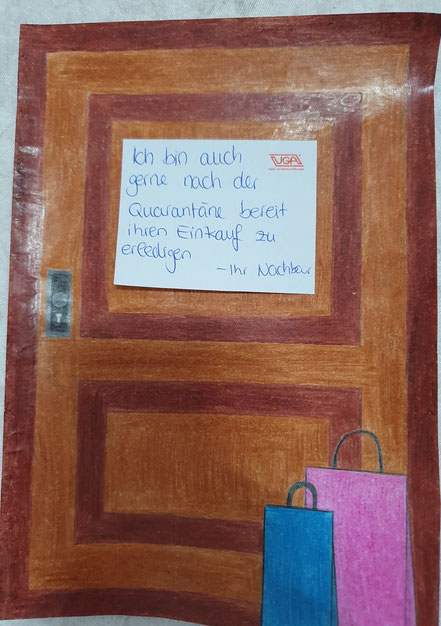 Ich bin auch
UGA
gerne nach der
Quarantäne bereit
ihren Einkauf zu
erledigen
– Ihr Nachbar